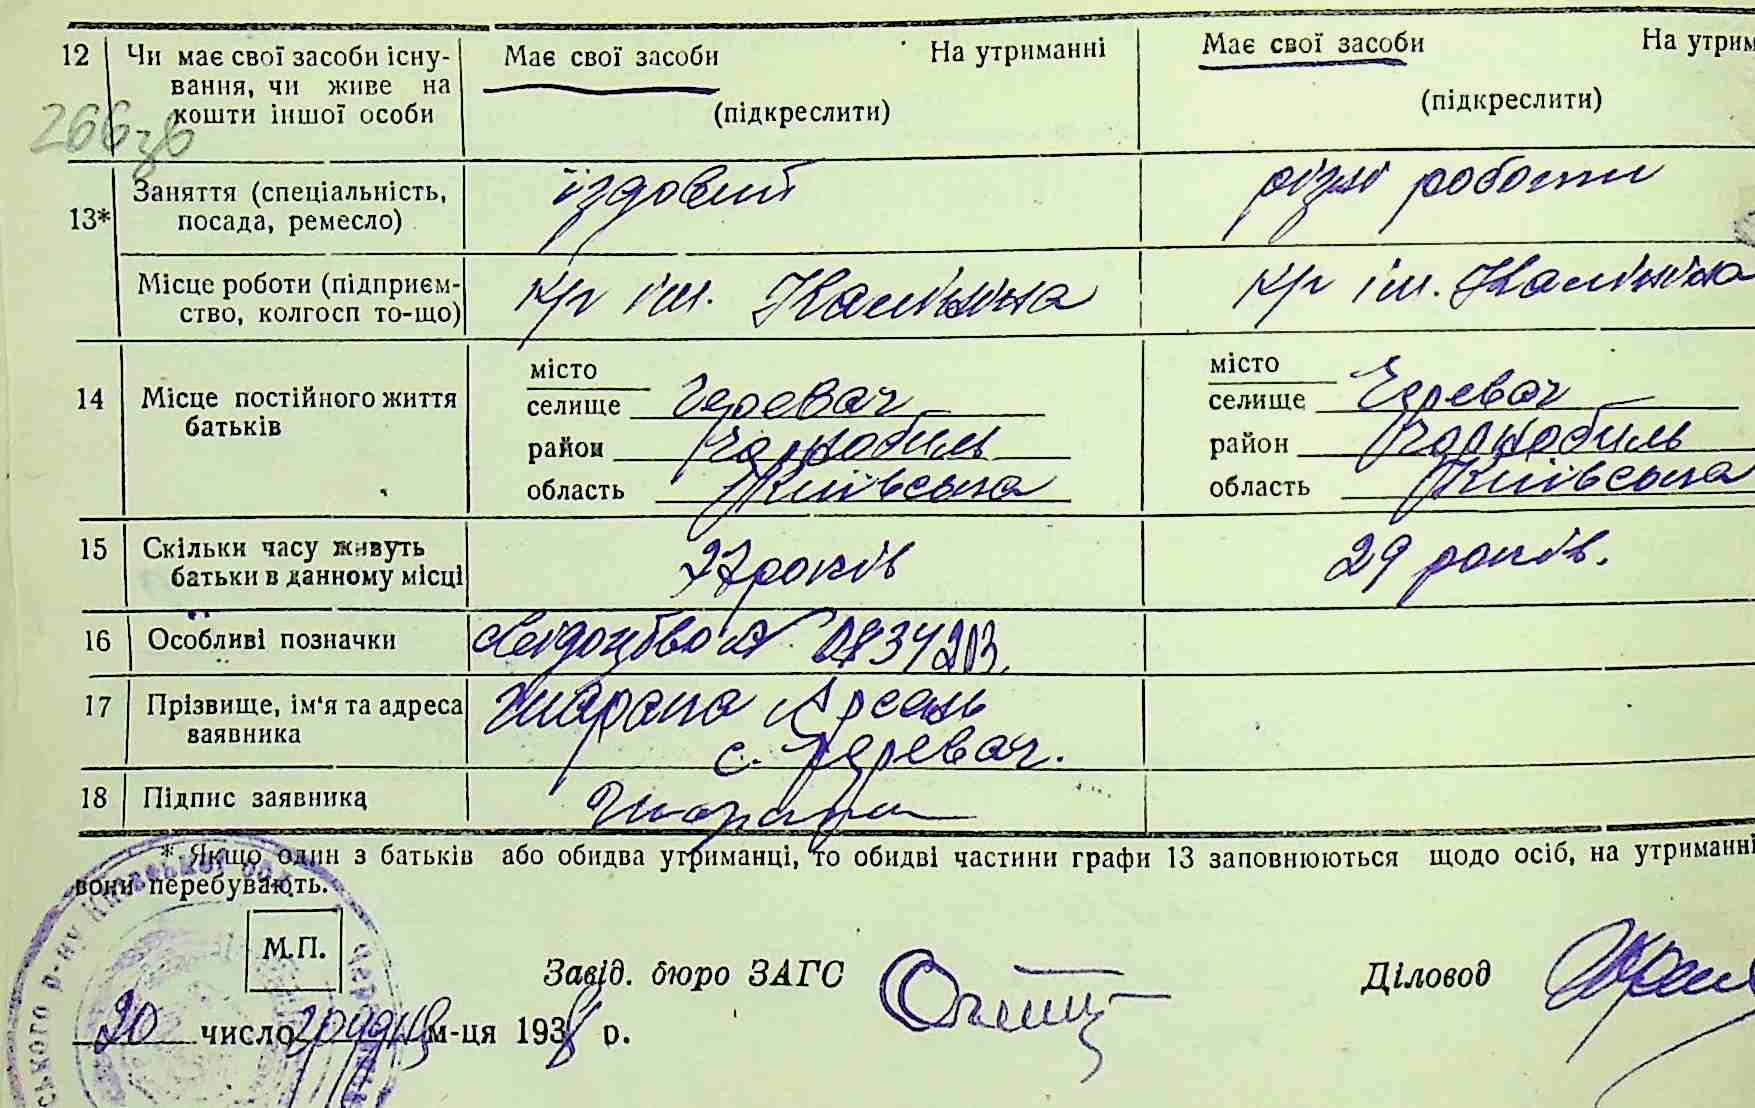 12 Чи має свої засоби існу- Має свої засоби На утриманні Має свої засоби На утрим
вання, чи живе на
кошти іншої особи (підкреслити) (підкреслити)
266зв
13* Заняття (спеціальність, їздовий різні роботи
посада, ремесло)
Місце роботи (підприєм- кг ім. Калініна кг ім. Калініна
ство, колгосп то-що)
місто місто
14 Місце постійного життя селище Черевач селище Черевач
батьків район Чорнобиль район Чорнобиль
область Київська область Київська
15 Скільки часу живуть 27 років 29 років.
батьки в данному місці
16 Особливі позначки
17 Прізвище, ім'я та адреса Арсень
заявника с. Черевач.
18 Підпис заявника
* Якщо один з батьків або обидва утриманці, то обидві частини графи 13 заповнюються щодо осіб, на утриманні
вони перебувають.
М.П.
Завід. бюро ЗАГС Діловод
20 число грудня м-ця 1938 р.
ського р-ну Київської обл.